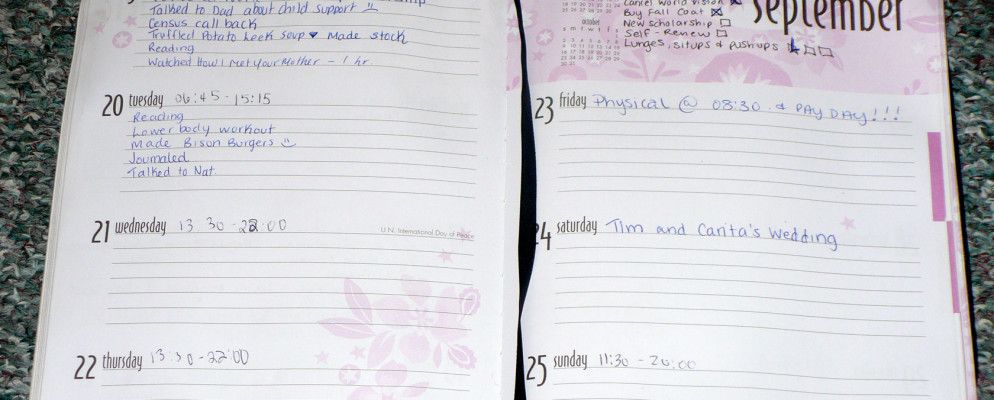 Talked to Dad about child support
Census call back
Truffled Potato Leek Soup ♥ Made stock
Reading
Watched How I Met Your Mother - 1 hr.
20 tuesday 06:45 - 15:15
Reading
Lower body workout
Made Bison Burgers
Journaled
Talked to Nat.
21 wednesday 13:30 - 22:00
U.N. International Day of Peace
22 thursday 13:30 - 22:00
september
Cancel World Vision
Buy Fall Coat
New scholarship
Self-Review
Lunges, situps & pushups
october
s m t w t f s
23 friday Physical @ 08:30 & PAY DAY!!!
24 saturday Tim and Carita's Wedding
25 sunday 11:30 - 20:00